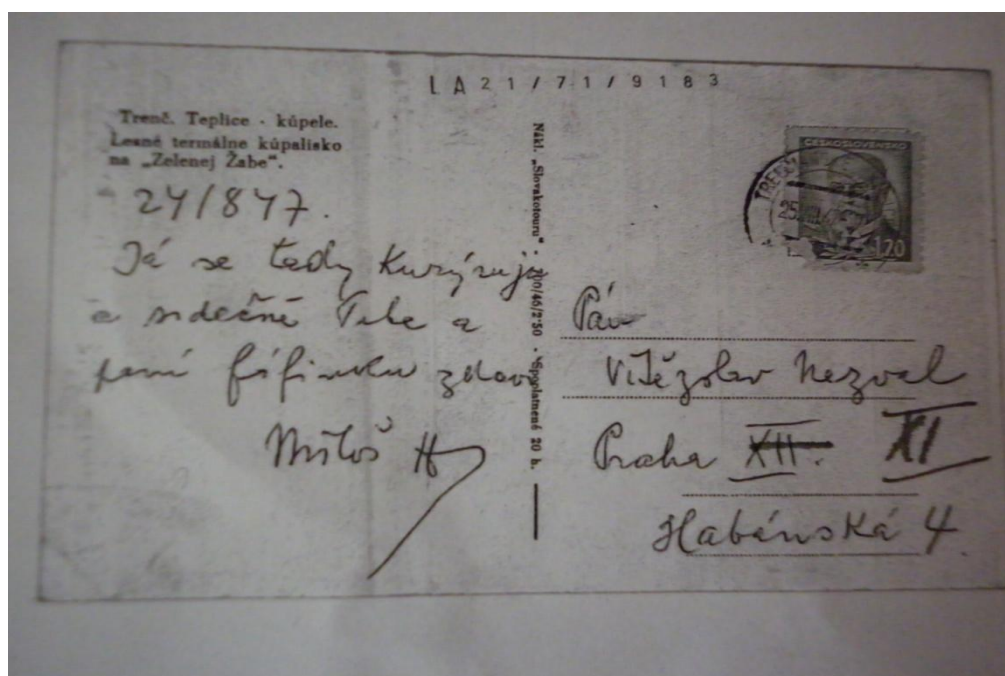 LA21/71/9183
Trenč. Teplice - kúpele.
Lesné termálne kúpalisko
na „Zelenej Žabe".
24/847.
Já se tady kurýruju
a srdečně Tebe a
paní fáfinku zdraví
Miloš H
Nákl. „Slovakotouru" · 200/46/2·50 · Spoplatnené 20 h.
ČESKOSLOVENSKO
1.20
TREN
25.VIII.
Pán
Vítězslav Nezval
Praha XII. XI
Habánská 4.